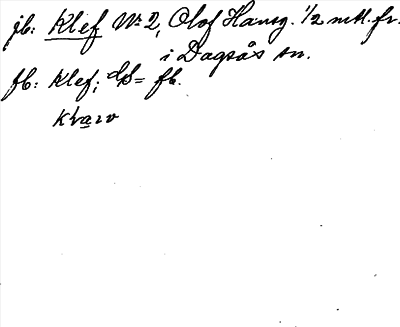 jb: Klef No 2, Olof Hansg. 1/2 mtl. fr.
i Dagsås sn.
fb: Klef; ds= fb.